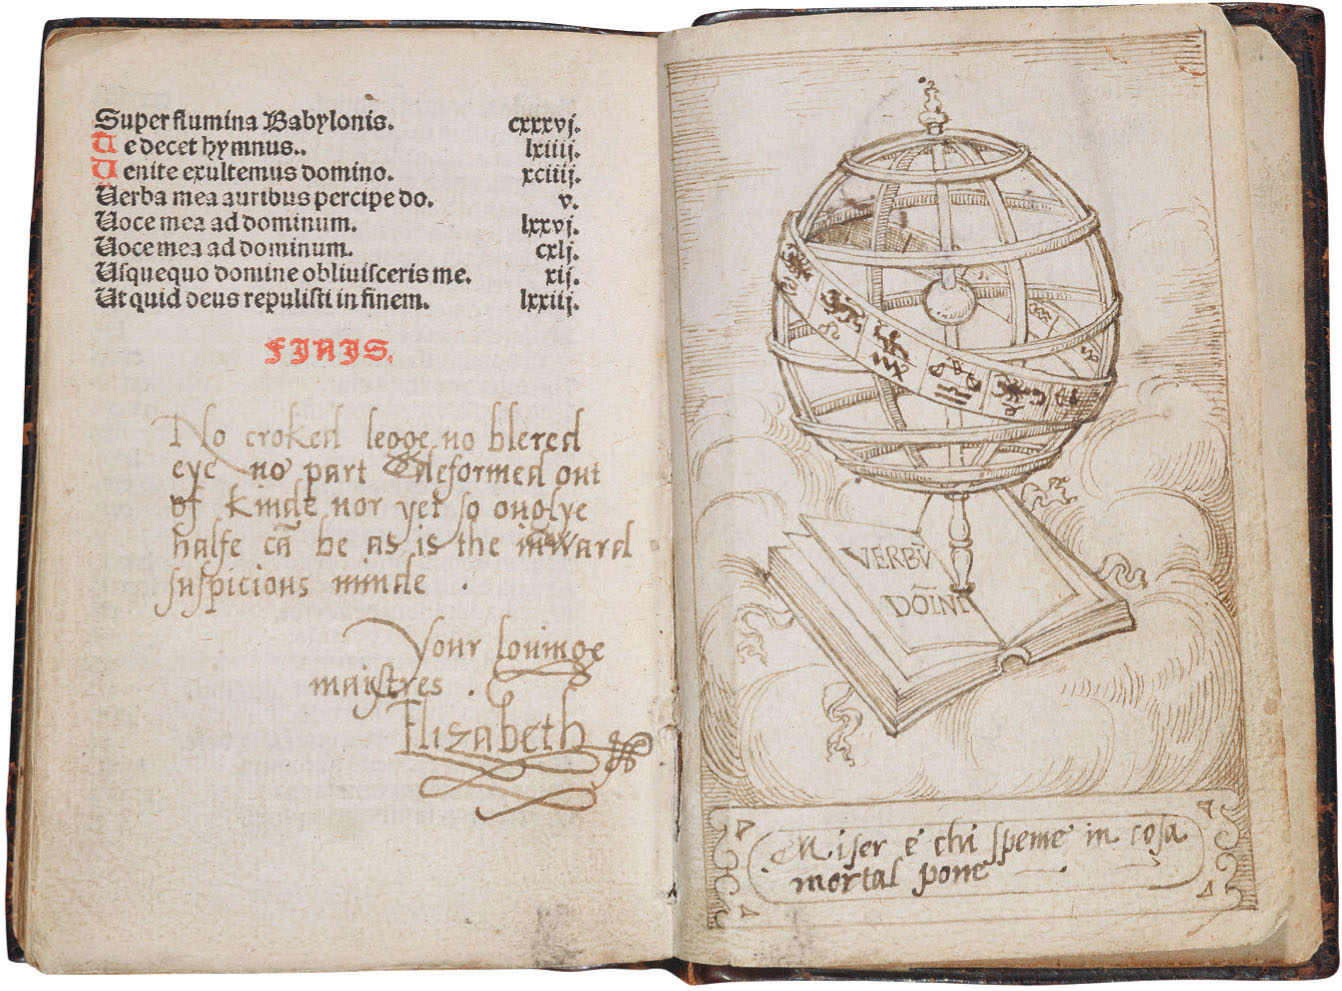 Super flumina Babylonis. cxxxvj.
Te decet hymnus.. lxiiij.
Uenite exultemus domino. xciiij.
Uerba mea auribus percipe do. v.
Uoce mea ad dominum. lxxvj.
Uoce mea ad dominum. cxlj.
Usquequo domine obliuisceris me. xij.
Ut quid deus repulisti in finem. lxxiij.
FINIS.
No croked legge no blered
eye no part deformed out
of kinde nor yet so ouglye
halfe cā be as is the inward
suspicious minde .
Your louinge
maistres .
Elizabeth
VERBŪ
DOĪNI
Miser é chi speme in cosa
mortal pone